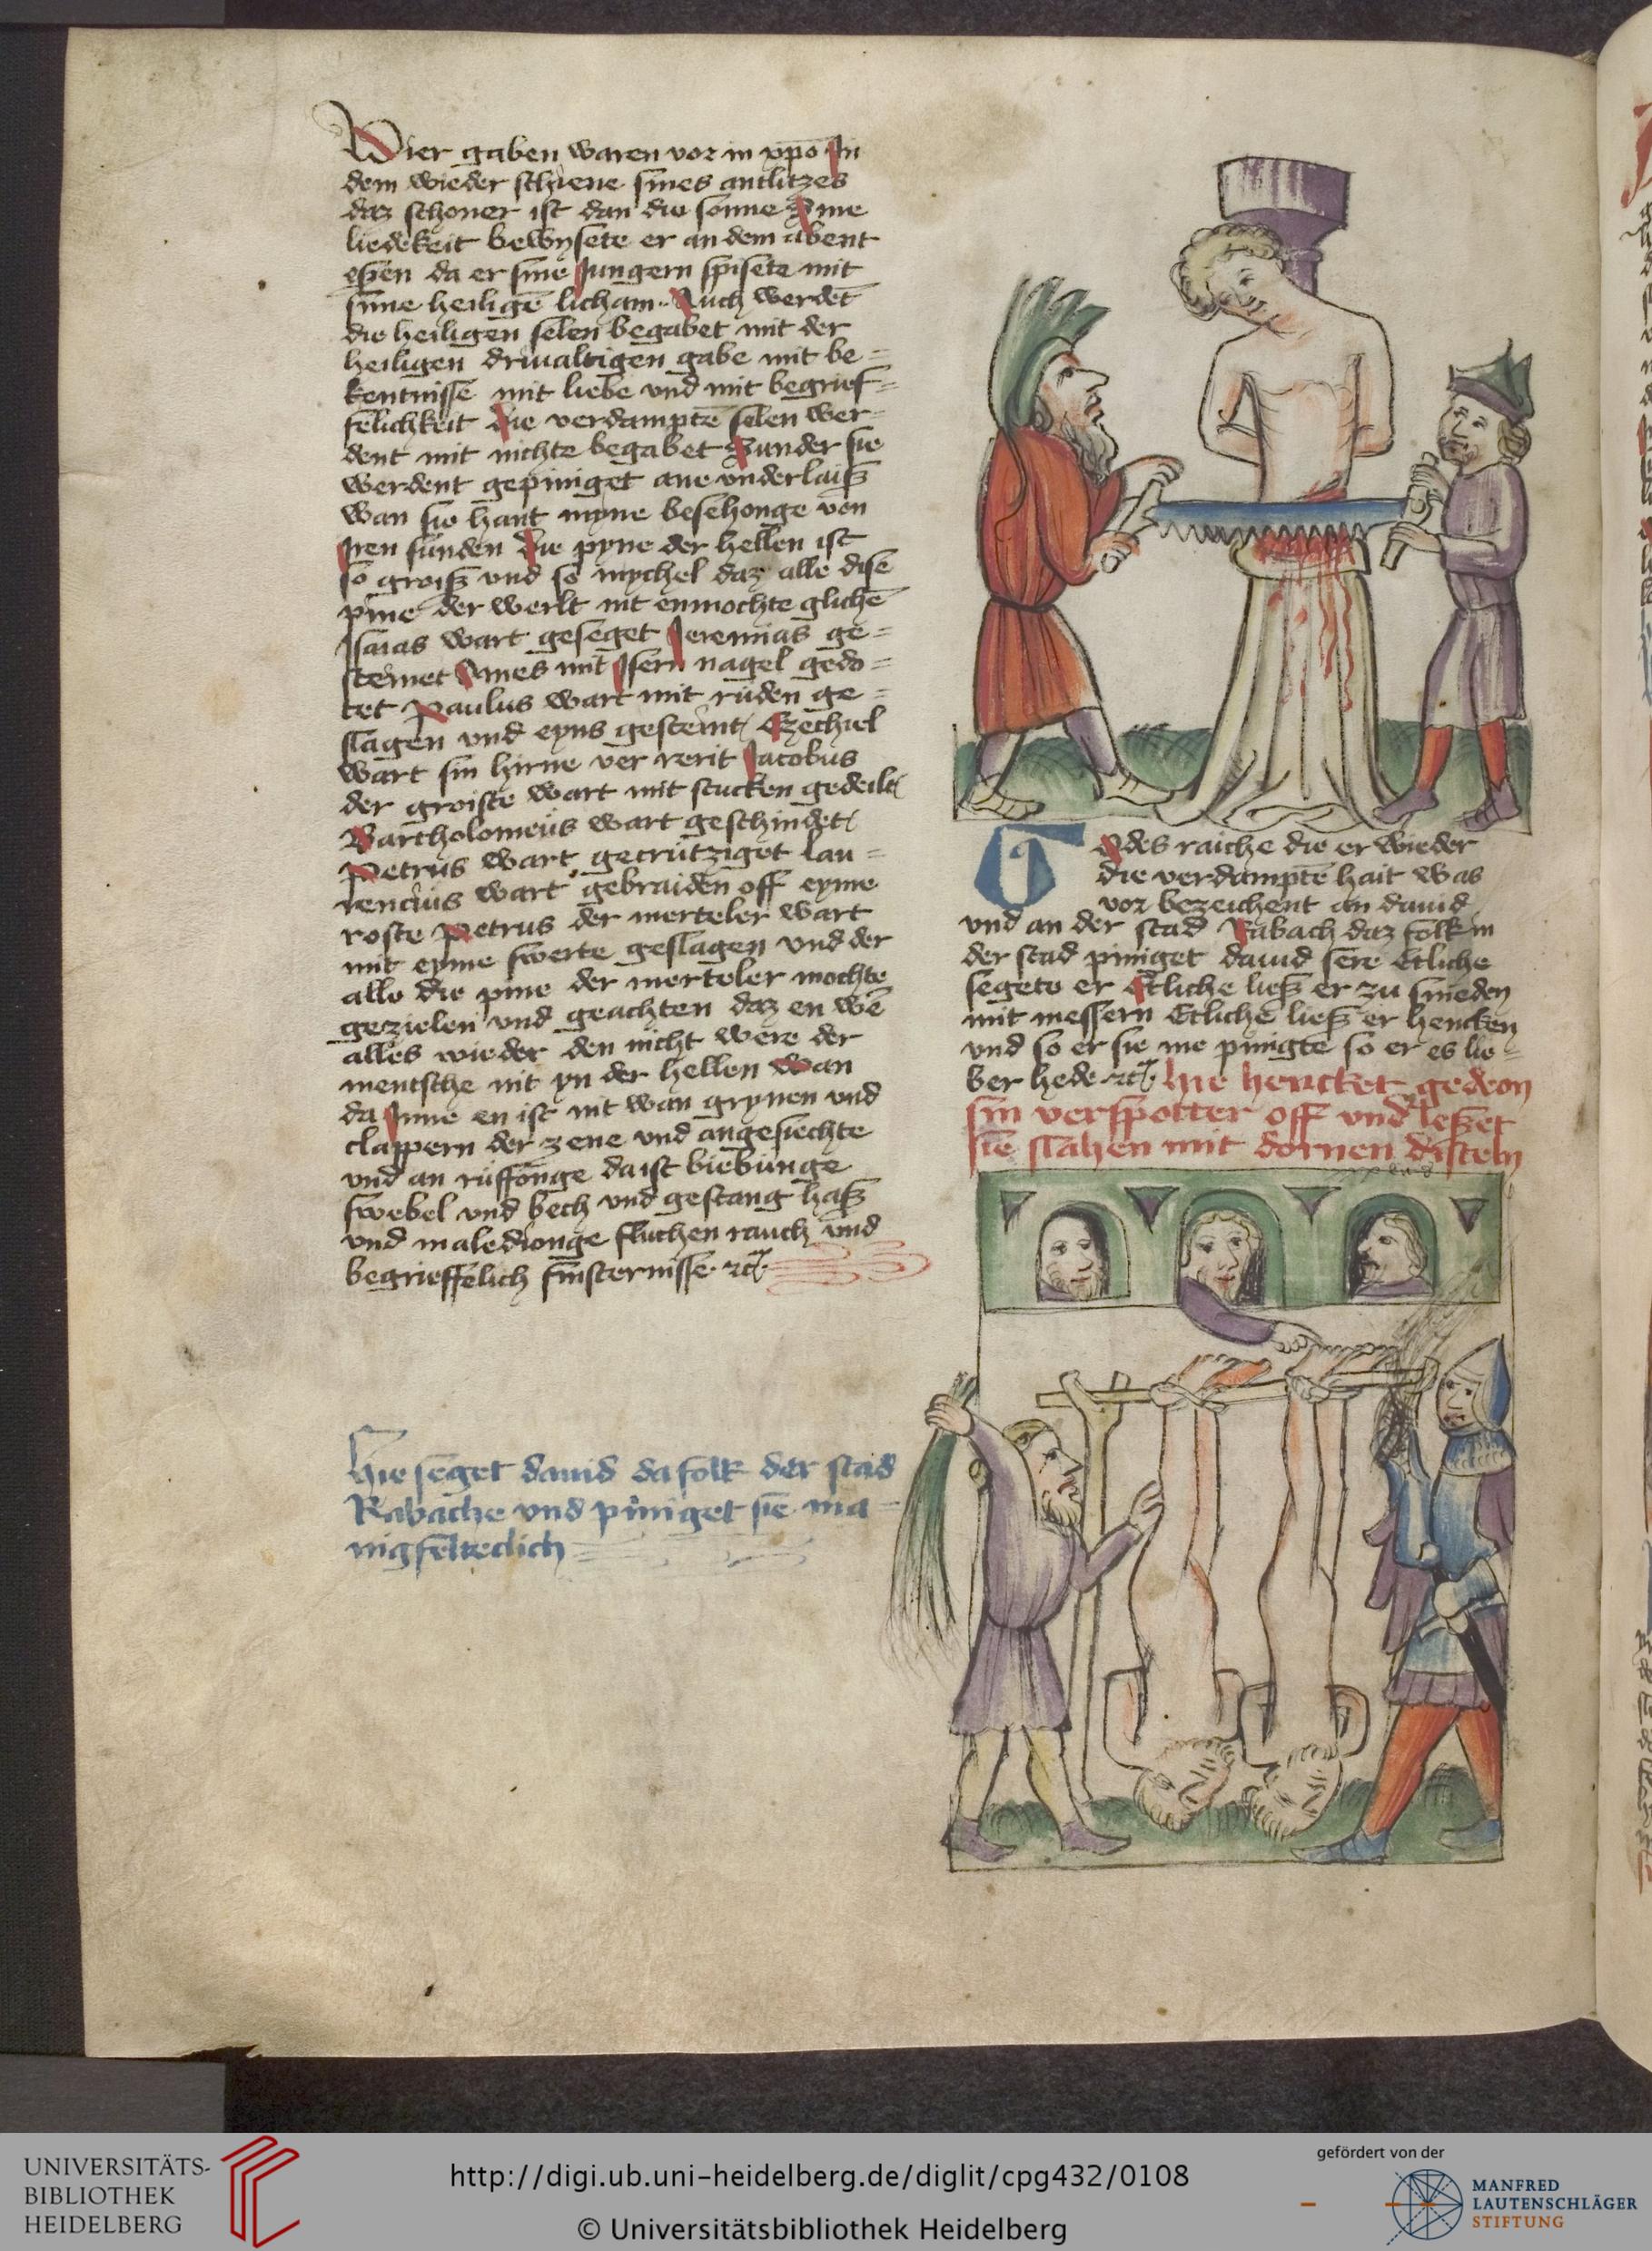 Dier gaben waren vor in xpo In
dem wieder schiene sines antlitzes
daz schoner ist dan die sonne Sine
liedekeit bewysete er an dem abent
eßen da er sine Jungern spisete mit
sinne heiligē licham Auch werdēt
die heiligen selen begabet mit der
heiligen driualtigen gabe mit be=
kentnisse mit liebe vnd mit begrief=
felichkeit die verdamptē selen wer=
dent mit nichte begabet Sunder sie
werdent gepiniget ane vnderlaiß
wan sie hant myne besehonge von
Jren sunden die pyne der hellen ist
so groiß vnd so mychel daz alle dise
pine der werlt nit enmochte glichē
Isaias wart geseget Jeremias ge=
steinet Amos mit Jsern nagel gedo=
tet Paulus wart mit ruden ge=
slagen vnd eyns gesteint Ezechiel
wart sin hirne ver rerit Jacobus
der groiste wart mit stucken gedeilt
Bartholomeus wart geschindet
Petrus wart gecrutziget lau=
rencius wart gebraiden off eyme
roste Petrus der merteler wart
mit eyme swerte geslagen vnd der
alle die pine der merteler mochte
gezielen vnd geachten daz en wē
alles wieder den nicht were der
mentsche nit yn der hellen Wan
da Jnne en ist nit wan grynen vnd
clappern der zene vnd angesiechte
vnd an ruffonge da ist biebunge
swebel vnd bech vnd gestang haß
vnd maledionge fluchen rauch vnd
begrieffelich finsternisse etc
Hie seget dauid da folk der stad
Rabache vnd piniget sie ma=
nigfelteclich
Godes raiche die er wieder
die verdamptē hait was
vor bezeichent an dauid
vnd an der stad Rabach daz folk in
der stad piniget dauid sere Etliche
segete er Etliche ließ er zu snieden
mit messern Etliche ließ er hencken
vnd so er sie me pinigte so er es lie=
ber hede etc Hie hencket gedeon
sin verspotter off vnd leßet
sie slahen mit dornen disteln
UNIVERSITÄTS-
BIBLIOTHEK
HEIDELBERG
http://digi.ub.uni-heidelberg.de/diglit/cpg432/0108
© Universitätsbibliothek Heidelberg
gefördert von der
MANFRED
LAUTENSCHLÄGER
STIFTUNG